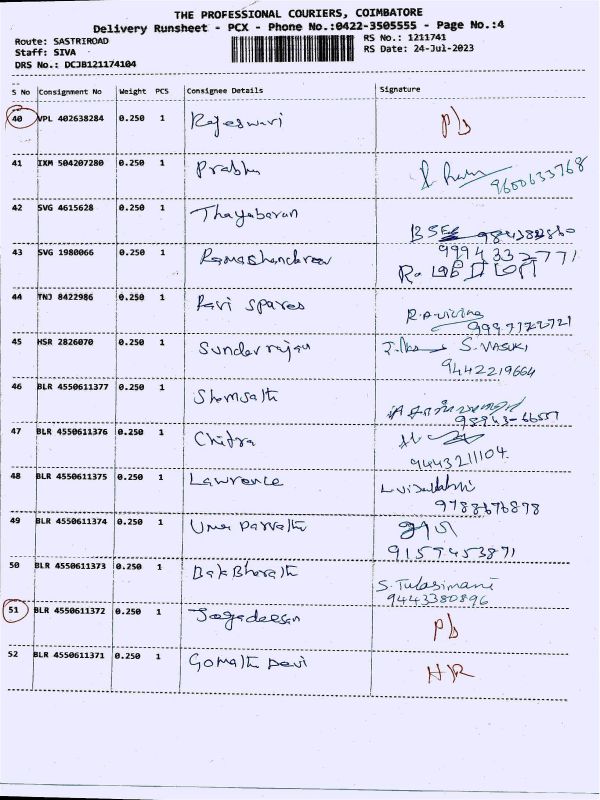 THE PROFESSIONAL COURIERS, COIMBATORE
Delivery Runsheet - PCX - Phone No.:0422-3505555 - Page No.:4
Route: SASTRIROAD RS No.: 1211741
Staff: SIVA RS Date: 24-Jul-2023
DRS No.: DCJB121174104
S No Consignment No Weight PCS Consignee Details Signature
40 VPL 402638284 0.250 1 Rajeswari Pb
41 IXM 504207280 0.250 1 Prabhu
9600633768
42 SVG 4615628 0.250 1 Thayabaran
43 SVG 1980066 0.250 1 Ramachandran
9994332771
44 TNJ 8422986 0.250 1 Ravi Spares
45 HSR 2826070 0.250 1 Sunderrajan S. VASUKI
9442219664
46 BLR 4550611377 0.250 1
98943-66557
47 BLR 4550611376 0.250 1 Chitra
9443211104
48 BLR 4550611375 0.250 1 Lawrence
9788676878
49 BLR 4550611374 0.250 1 Uma Parvathi
9157453871
50 BLR 4550611373 0.250 1 S. Tulasimani
9443380896
51 BLR 4550611372 0.250 1 Jagadeesan Pb
52 BLR 4550611371 0.250 1 Gomathi Devi HR